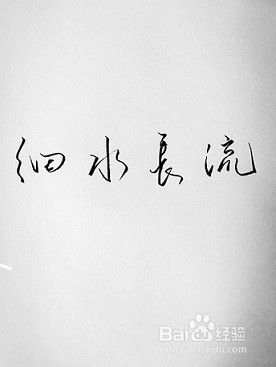 细水長流
Baidu经验
jingyan.baidu.com